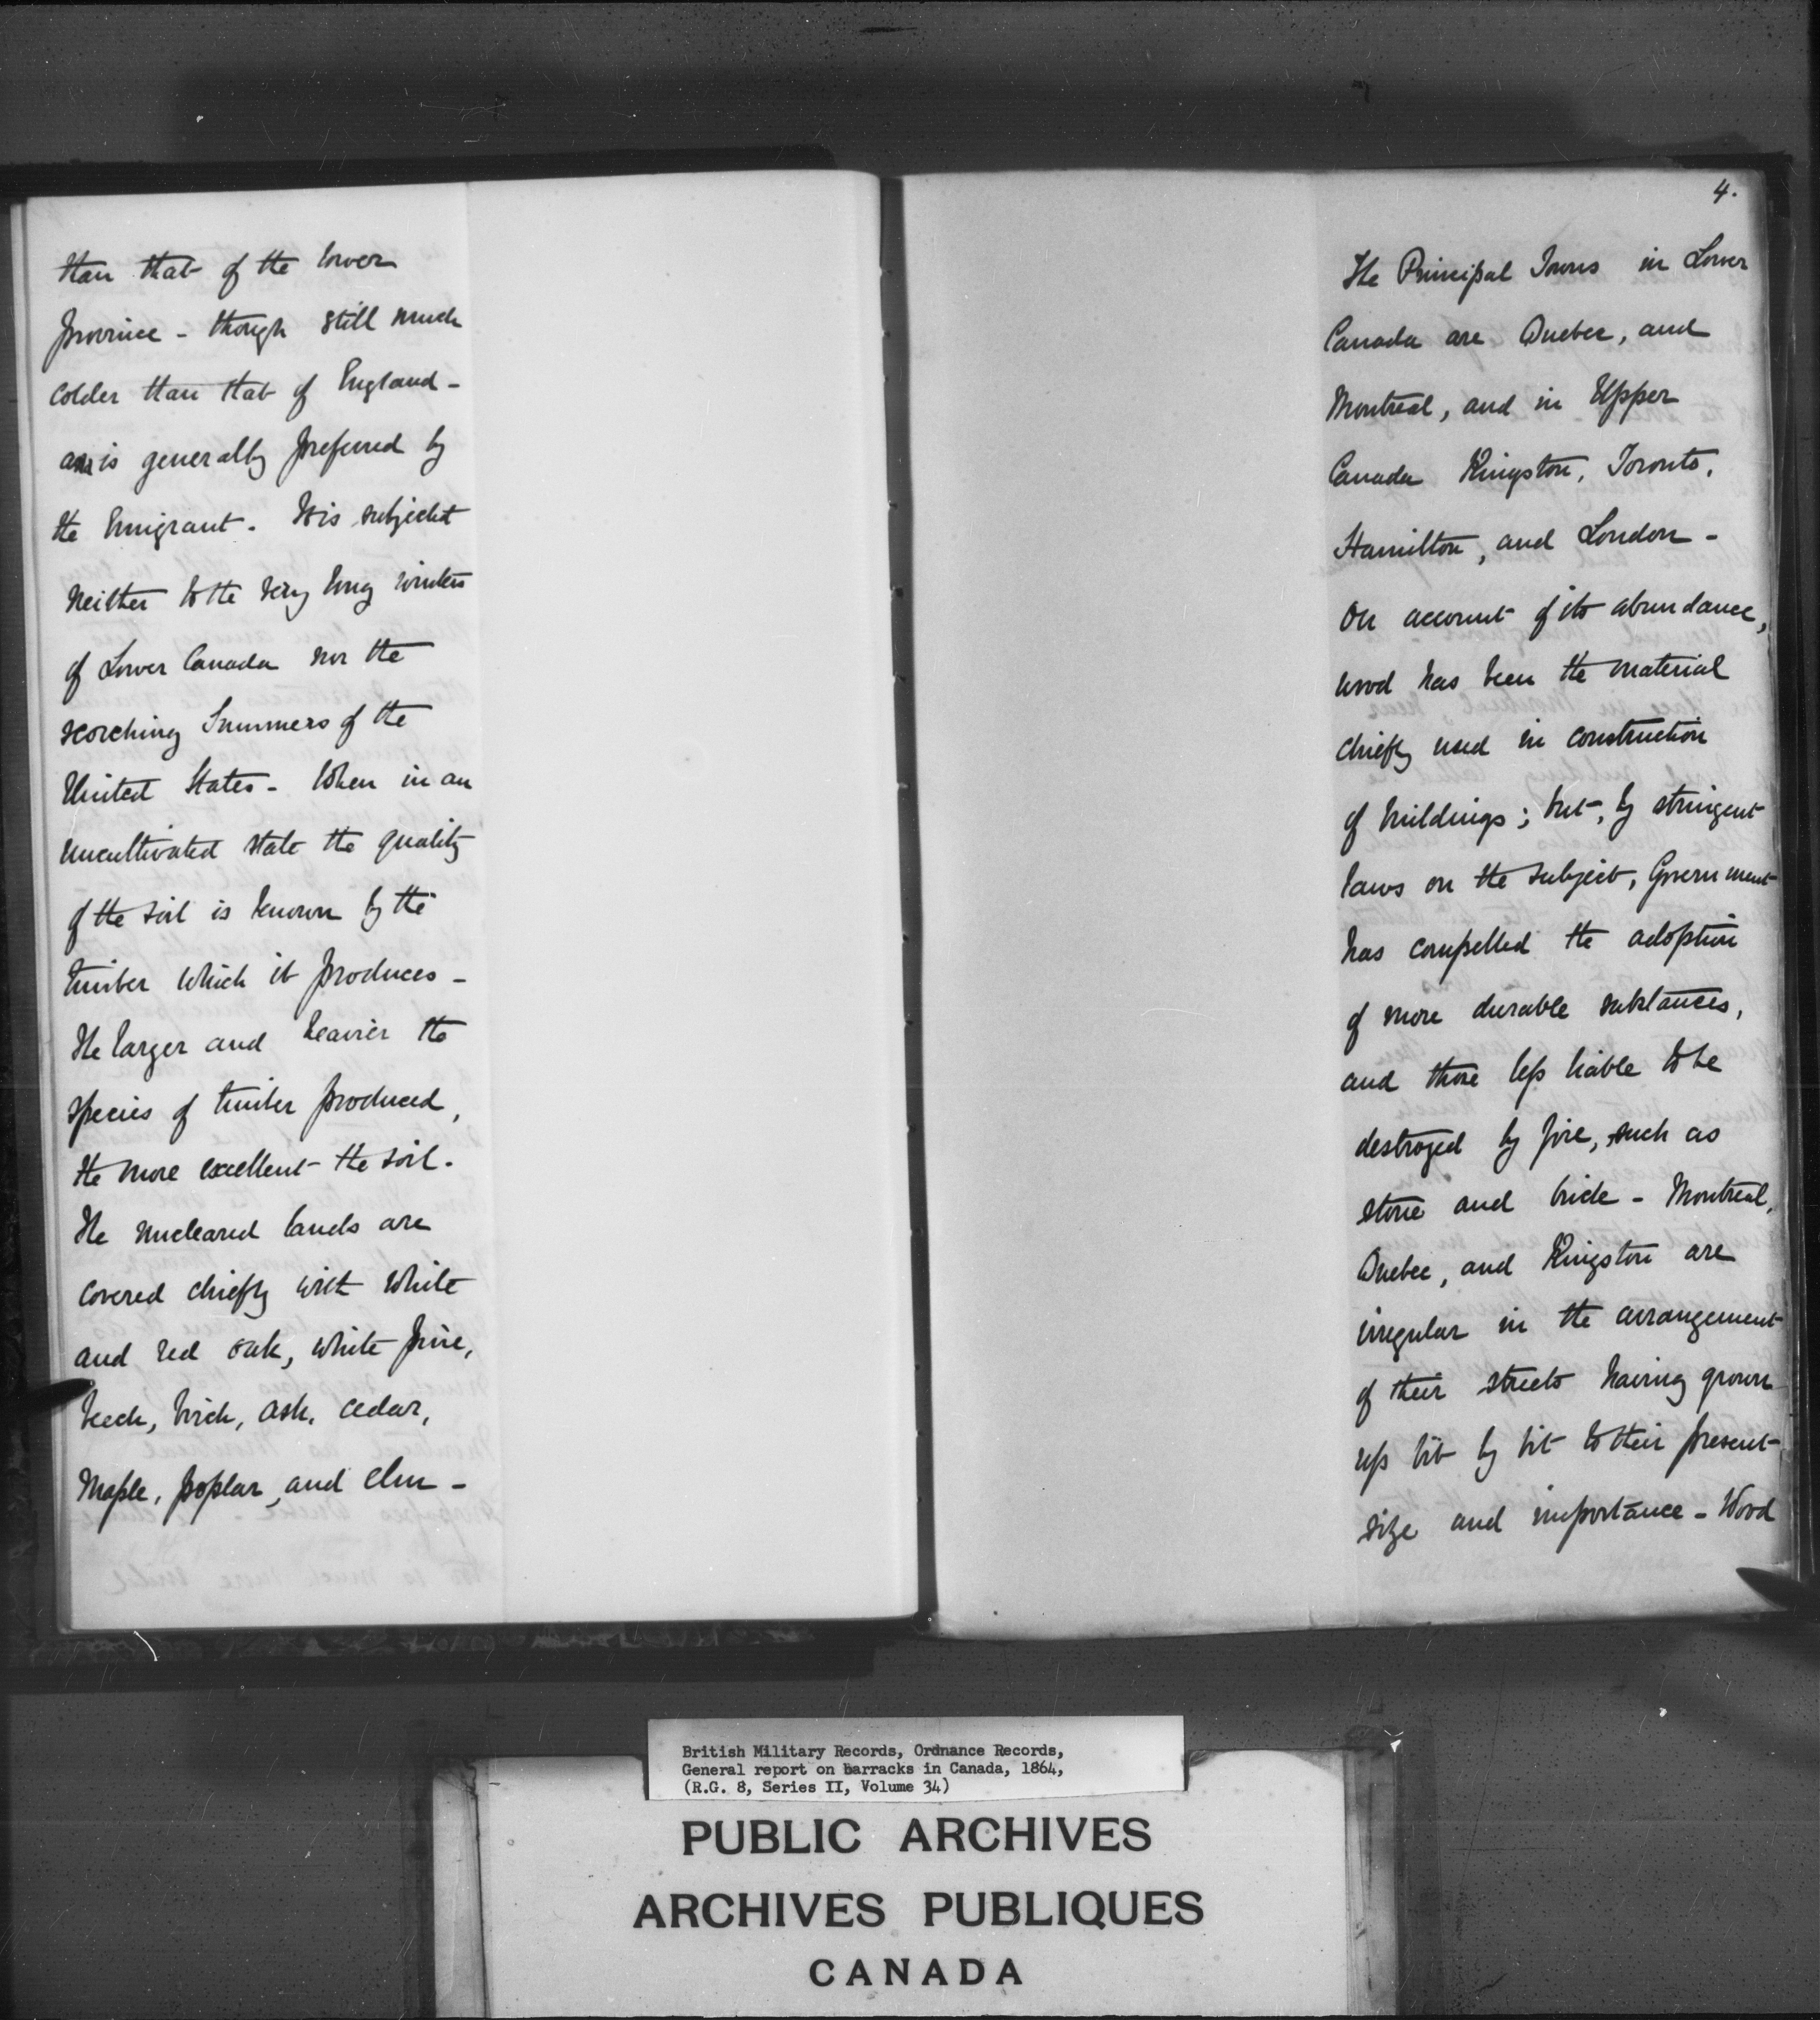 than that of the lower
province - though still much
colder than that of England -
is generally preferred by
the Emigrant. It is subjected
neither to the very long winters
of Lower Canada nor the
scorching Summers of the
United States - When in an
uncultivated state the quality
of the soil is known by the
timber which it produces -
The larger and heavier the
species of timber produced,
the more excellent the soil.
The uncleared lands are
covered chiefly with white
and red oak, white pine,
beech, birch, ash, cedar,
Maple, poplar, and elm -
4.
The Principal Towns in Lower
Canada are Quebec, and
Montreal, and in Upper
Canada Kingston, Toronto,
Hamilton, and London -
On account of its abundance,
wood has been the material
chiefly used in construction
of buildings; but, by stringent
laws on the subject, Government
has compelled the adoption
of more durable substances,
and those less liable to be
destroyed by fire, such as
stone and brick - Montreal,
Quebec, and Kingston are
irregular in the arrangement
of their streets having grown
up bit by bit to their present
size and importance - Wood
British Military Records, Ordnance Records,
General report on Barracks in Canada, 1864,
(R.G. 8, Series II, Volume 34)
PUBLIC ARCHIVES
ARCHIVES PUBLIQUES
CANADA